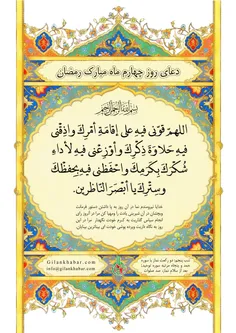 دعای روز چهارم ماه مبارک رمضان
بسم الله الرحمن الرحیم
اللهم قونی فیه علی إقامة أمرك وأذقنی
فیه حلاوة ذكرك وأوزعنی فیه لأداء
شكرك بكرمك واحفظنی فیه بحفظك
وسترك یا أبصر الناظرین
خدایا نیرومندم نما در آن روز به پا داشتن دستور فرمانت
وبچشان در آن شیرینی یادت را ومهیا کن مرا در آنروز برای
انجام سپاس گذاریت به کرم خودت نگهدار مرا در این
روز به نگاه داریت وپرده پوشی خودت ای بیناترین بینایان.
Gilankhabar.com
info@gilankhabar.com